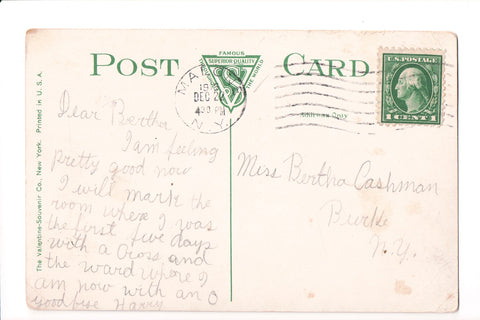 POST CARD
FAMOUS
SUPERIOR QUALITY
U.S. POSTAGE
1 CENT 1
DEC 2
4 30 PM
N.Y.
Address Only
The Valentine-Souvenir Co., New York. Printed in U.S.A.
Dear Bertha
I am feeling
pretty good now
I will mark the
room where I was
the first five days
with a Cross and
the ward where I
am now with an O
Good bye Harry
Miss Bertha Cashman
Burke
N.Y.